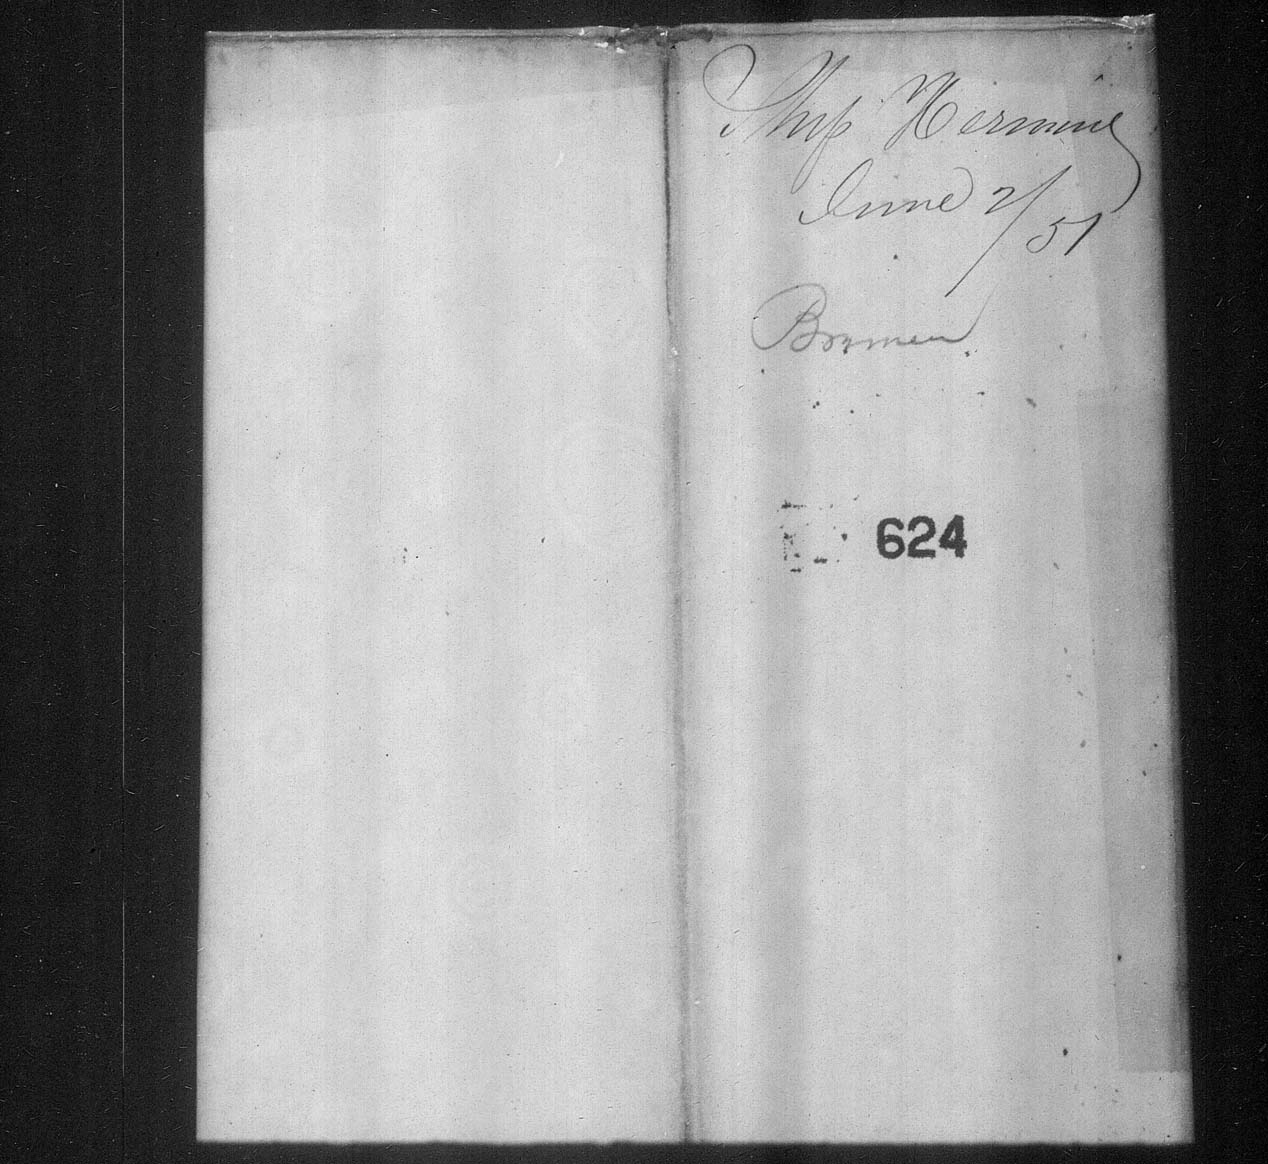 Ship Hermine
June 2/51
Bremen
624